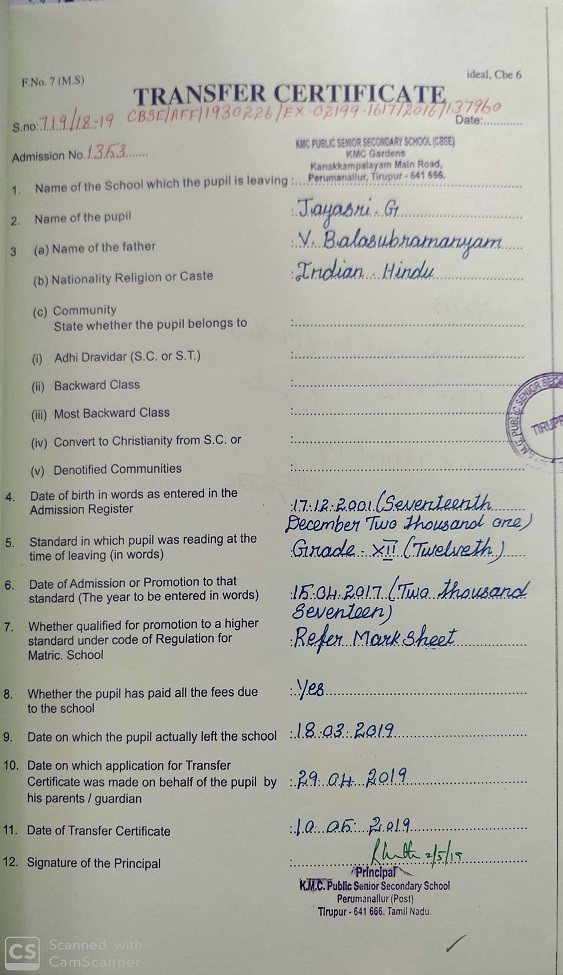 F.No. 7 (M.S)
ideal, Cbe 6
TRANSFER CERTIFICATE
S.no: 719/18-19 CBSE/AFF/1930226/EX-02199-1617/2016/137960
Date:
Admission No. 1353
KMC PUBLIC SENIOR SECONDARY SCHOOL (CBSE)
KMC Gardens
Kanakkampalayam Main Road,
Perumanallur, Tirupur - 641 666.
1. Name of the School which the pupil is leaving :
2. Name of the pupil : Jayasri. G
3 (a) Name of the father : V. Balasubramanyam
(b) Nationality Religion or Caste : Indian. Hindu
(c) Community
State whether the pupil belongs to :
(i) Adhi Dravidar (S.C. or S.T.) :
(ii) Backward Class :
(iii) Most Backward Class :
(iv) Convert to Christianity from S.C. or :
(v) Denotified Communities :
K.M.C. PUBLIC SENIOR SEC
TIRUP
4. Date of birth in words as entered in the : 17.12.2001 (Seventeenth
Admission Register December Two thousand one)
5. Standard in which pupil was reading at the : Grade - XII (Twelveth)
time of leaving (in words)
6. Date of Admission or Promotion to that : 15.04.2017 (Two thousand
standard (The year to be entered in words) Seventeen)
7. Whether qualified for promotion to a higher : Refer Mark Sheet
standard under code of Regulation for
Matric. School
8. Whether the pupil has paid all the fees due : Yes
to the school
9. Date on which the pupil actually left the school : 18.03.2019
10. Date on which application for Transfer : 29.04.2019
Certificate was made on behalf of the pupil by
his parents / guardian
11. Date of Transfer Certificate : 10.05.2019
12. Signature of the Principal : 2/5/19
Principal
K.M.C. Public Senior Secondary School
Perumanallur (Post)
Tirupur - 641 666. Tamil Nadu.
CS Scanned with
CamScanner